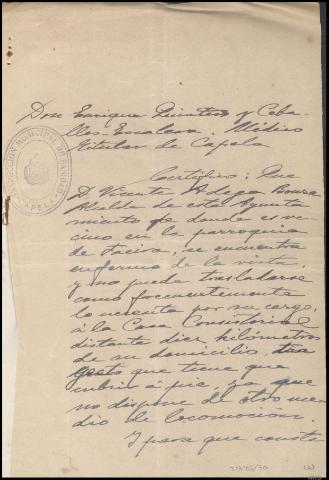 Don Enrique Quintero y Ceba-
llos-Escalera. Médico
titular de Capela
Certifico: Que
D. Vicente Adega Bouza
Alcalde de este Ayunta
miento de donde es ve-
cino en la parroquia
de Faeira, se encuentra
enfermo de la vista,
y no puede trasladarse
como frecuentemente
lo necesita por su cargo,
á la Casa Consistorial
distante diez kilómetros
de su domicilio,
que tiene que
cubrir á pie, ya que
no dispone de otro me-
dio de locomoción.
Y para que conste
INSPECCION MUNICIPAL DE SANIDAD
CAPELA